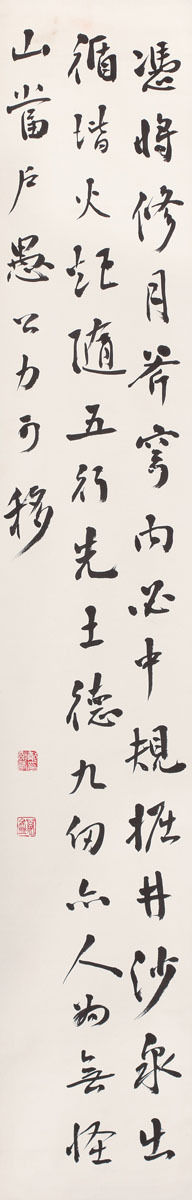 憑將修月斧穹內必中規掘井沙泉出
循堦火炬隨五行先土德九仞亦人為無怪
山當戶愚公力可移